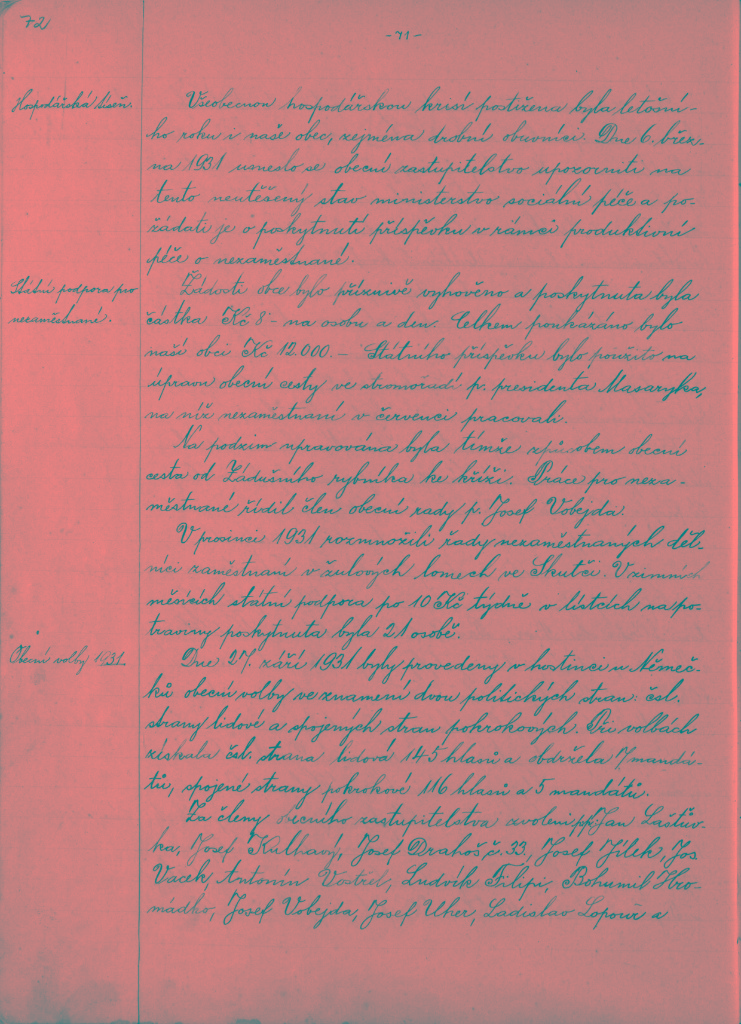 72
-71-
Hospodářská tíseň.
Všeobecnou hospodářskou krisí postižena byla letošní-
ho roku i naše obec, zejména drobní obuvníci. Dne 6. břez-
na 1931 usneslo se obecní zastupitelstvo upozorniti na
tento neutěšený stav ministerstvo sociální péče a po-
žádati je o poskytnutí příspěvku v rámci produktivní
péče o nezaměstnané.
Státní podpora pro
nezaměstnané.
Žádosti obce bylo příznivě vyhověno a poskytnuta byla
částka Kč 8·- na osobu a den. Celkem poukázáno bylo
naší obci Kč 12.000.- Státního příspěvku bylo použito na
úpravu obecní cesty ve stromořadí p. presidenta Masaryka,
na níž nezaměstnaní v červenci pracovali.
Na podzim upravována byla tímže způsobem obecní
cesta od Zádušního rybníka ke kříži. Práce pro neza-
městnané řídil člen obecní rady p. Josef Vobejda.
V prosinci 1931 rozmnožili řady nezaměstnaných děl-
níci zaměstnaní v žulových lomech ve Skutči. V zimních
měsících státní podpora po 10 Kč týdně v lístcích na po-
traviny poskytnuta byla 21 osobě.
Obecní volby 1931.
Dne 27. září 1931 byly provedeny v hostinci u Němeč-
ků obecní volby ve znamení dvou politických stran: čsl.
strany lidové a spojených stran pokrokových. Při volbách
získala čsl. strana lidová 145 hlasů a obdržela 7 mandá-
tů, spojené strany pokrokové 116 hlasů a 5 mandátů.
Za členy obecního zastupitelstva zvoleni pp. Jan Laštův-
ka, Josef Kulhavý, Josef Drahoš, č. 23, Josef Jílek, Jos
Vacek, Antonín Vostřel, Ludvík Filipi, Bohumil Hro-
mádko, Josef Vobejda, Josef Uher, Ladislav Lopour a